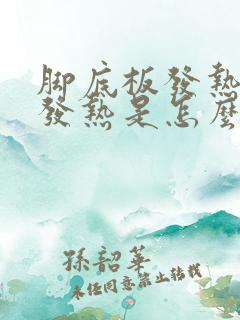 腳底板發熱
發熱是怎麼
孫韶華
未經同意禁止轉載